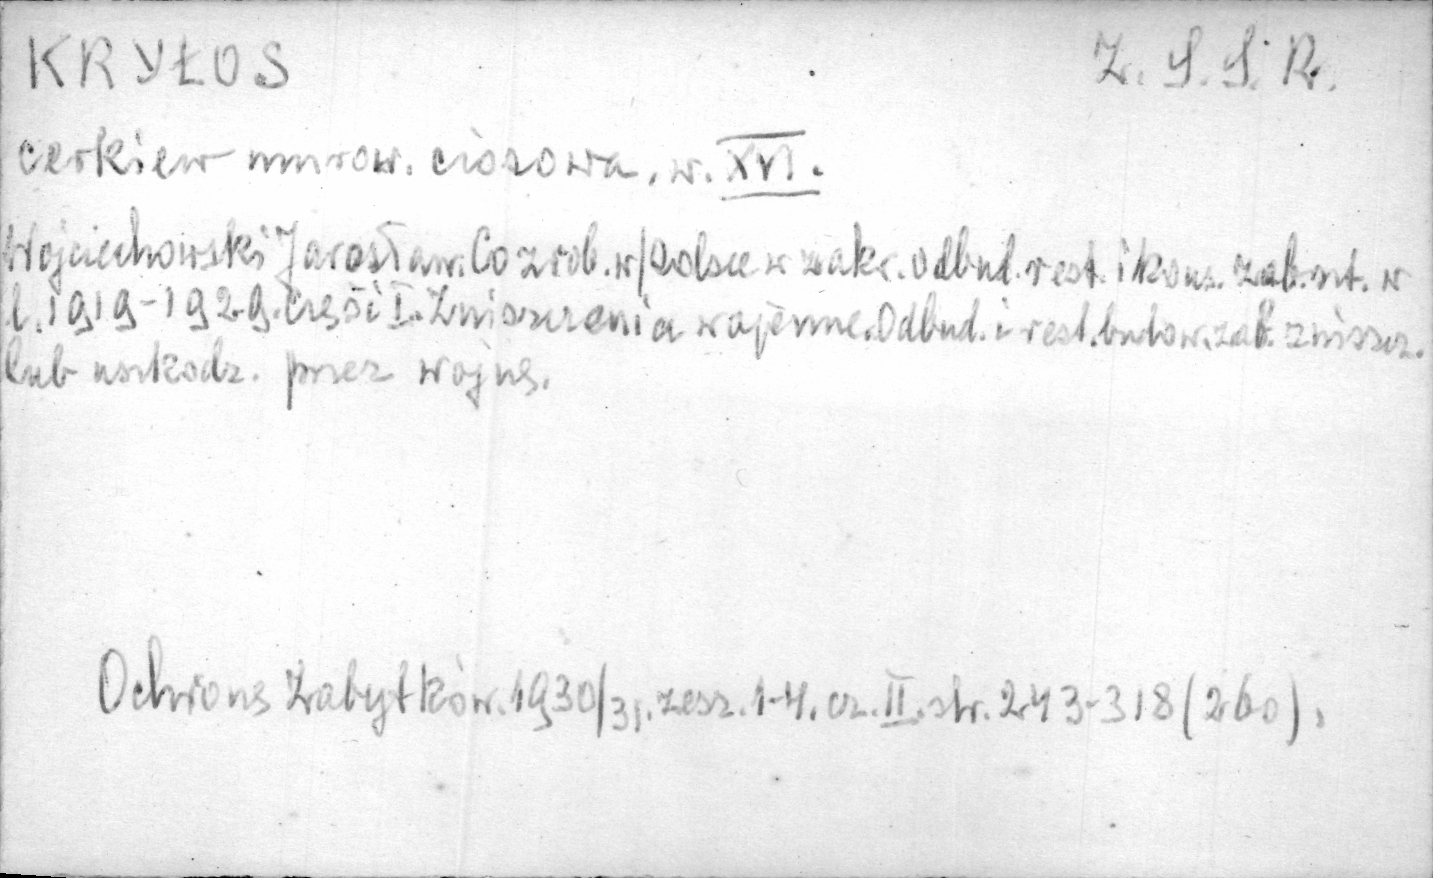 KRYŁOS Z. S. S. R.
cerkiew murow. ciosowa, w. XVI.
Wojciechowski Jarosław. Co zrob. w Polsce w zakr. odbud. rest. i kons. zab. szt. w
l. 1919-1929. Część I. Zniszczenia wojenne. Odbud. i rest. budow. zab. zniszcz.
lub uszkodz. przez wojnę.
Ochrona Zabytków. 1930/31. zesz. 1-4. cz. II. str. 243-318 (260).